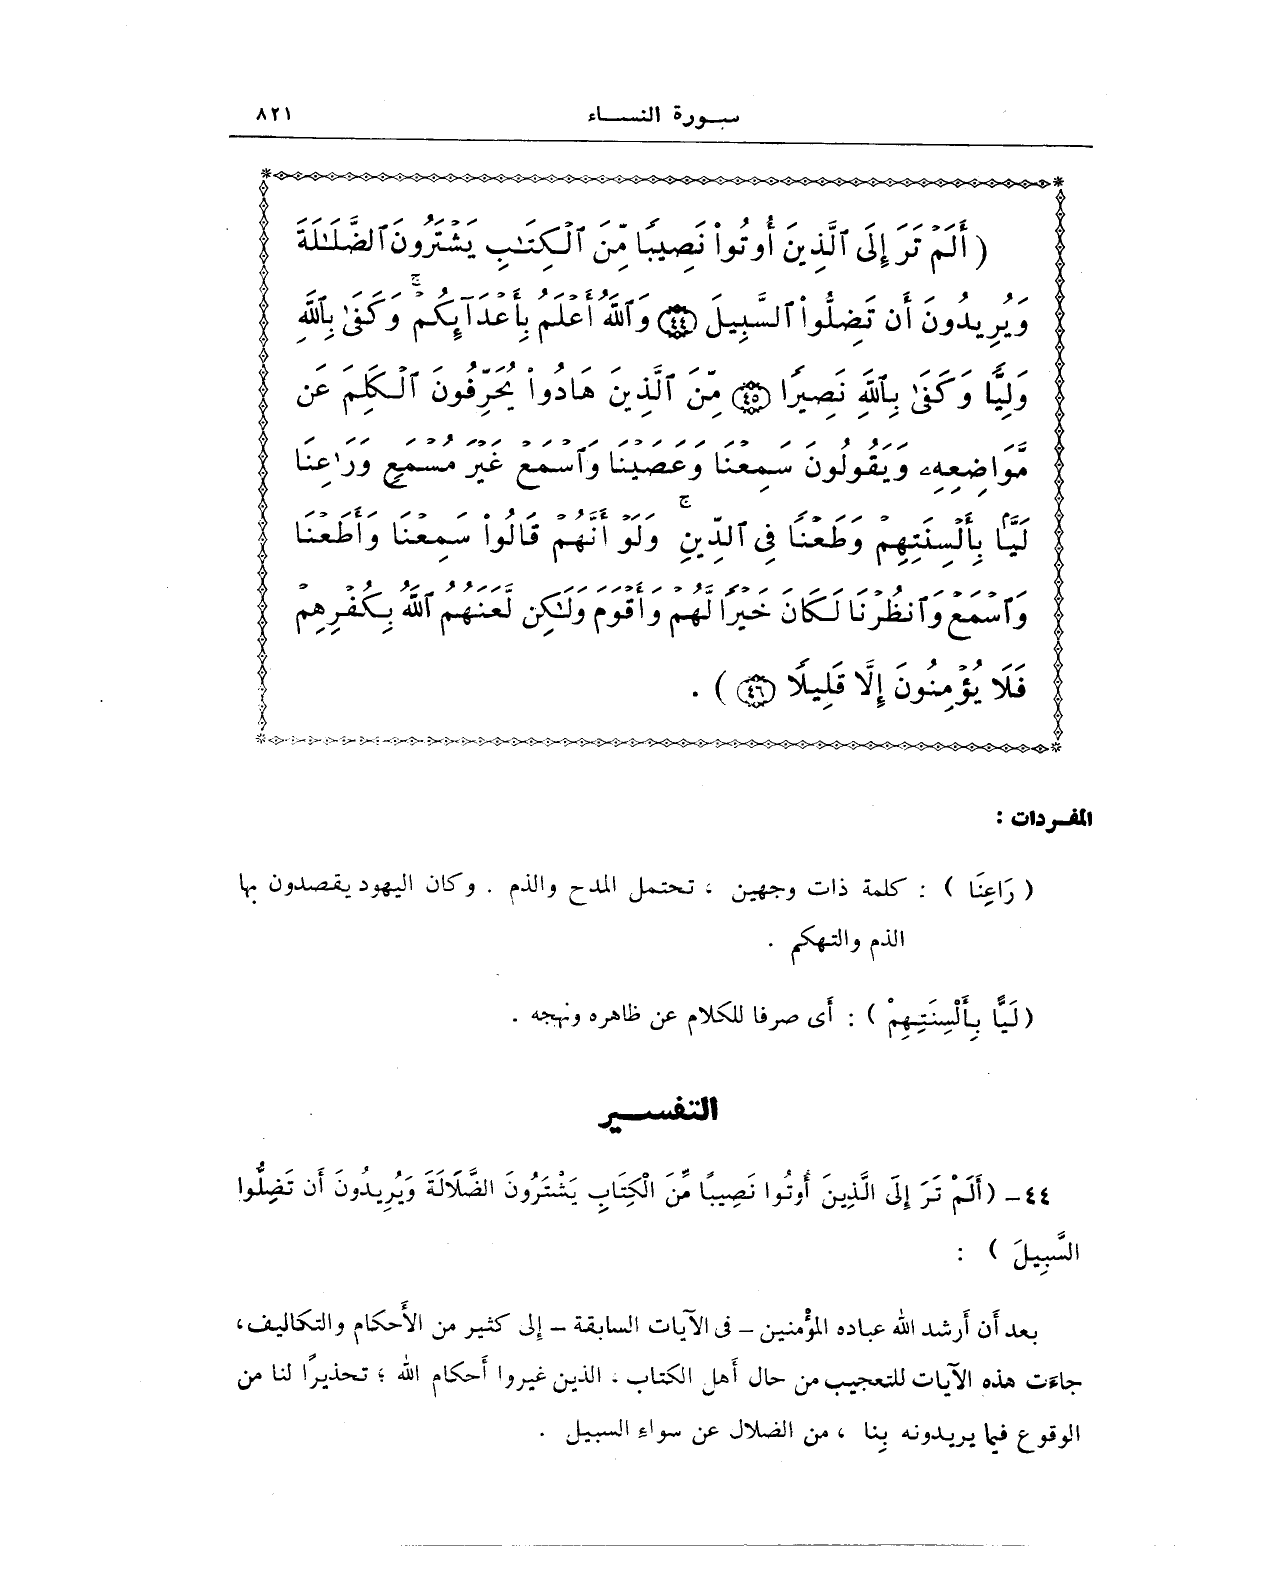 سورة النساء ٨٢١
( أَلَمْ تَرَ إِلَى ٱلَّذِينَ أُوتُوا۟ نَصِيبًا مِّنَ ٱلْكِتَـٰبِ يَشْتَرُونَ ٱلضَّلَـٰلَةَ
وَيُرِيدُونَ أَن تَضِلُّوا۟ ٱلسَّبِيلَ ٤٤ وَٱللَّهُ أَعْلَمُ بِأَعْدَآئِكُمْ ۚ وَكَفَىٰ بِٱللَّهِ
وَلِيًّا وَكَفَىٰ بِٱللَّهِ نَصِيرًا ٤٥ مِّنَ ٱلَّذِينَ هَادُوا۟ يُحَرِّفُونَ ٱلْكَلِمَ عَن
مَّوَاضِعِهِۦ وَيَقُولُونَ سَمِعْنَا وَعَصَيْنَا وَٱسْمَعْ غَيْرَ مُسْمَعٍ وَرَٰعِنَا
لَيًّۢا بِأَلْسِنَتِهِمْ وَطَعْنًا فِى ٱلدِّينِ ۚ وَلَوْ أَنَّهُمْ قَالُوا۟ سَمِعْنَا وَأَطَعْنَا
وَٱسْمَعْ وَٱنظُرْنَا لَكَانَ خَيْرًا لَّهُمْ وَأَقْوَمَ وَلَـٰكِن لَّعَنَهُمُ ٱللَّهُ بِكُفْرِهِمْ
فَلَا يُؤْمِنُونَ إِلَّا قَلِيلًا ٤٦ ) .
المفردات :
( رَاعِنَا ) : كلمة ذات وجهين ، تحتمل المدح والذم . وكان اليهود يقصدون بها
الذم والتهكم .
( لَيًّا بِأَلْسِنَتِهِمْ ) : أى صرفا للكلام عن ظاهره ونهجه .
التفسير
٤٤- ( أَلَمْ تَرَ إِلَى الَّذِينَ أُوتُوا نَصِيبًا مِّنَ الْكِتَابِ يَشْتَرُونَ الضَّلَالَةَ وَيُرِيدُونَ أَن تَضِلُّوا
السَّبِيلَ ) :
بعد أن أرشد الله عباده المؤْمنين – فى الآيات السابقة – إلى كثير من الأَحكام والتكاليف ،
جاءَت هذه الآيات للتعجيب من حال أَهل الكتاب ، الذين غيروا أَحكام الله ؛ تحذيرًا لنا من
الوقوع فيما يريدونه بِنا ، من الضلال عن سواء السبيل .